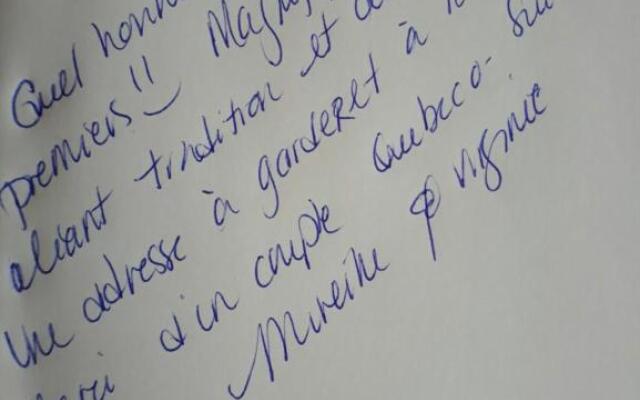 Quel honn
premiers!! Magni
alliant tradition et d
Une adresse à garder et à
d'un couple Québeco-Sui
Mireille & Virginie